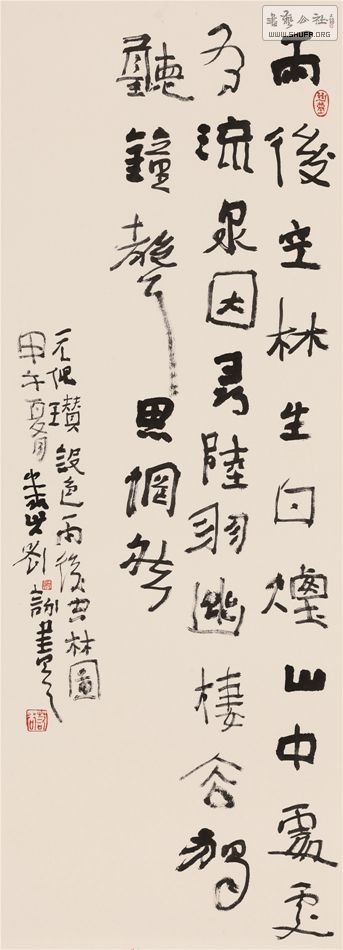 雨後空林生白煙山中處處
有流泉因尋陸羽幽棲處獨
聽鐘聲思惘然
元倪瓚設色雨後空林圖
甲午夏月
書藝公社
WWW.SHUFA.ORG